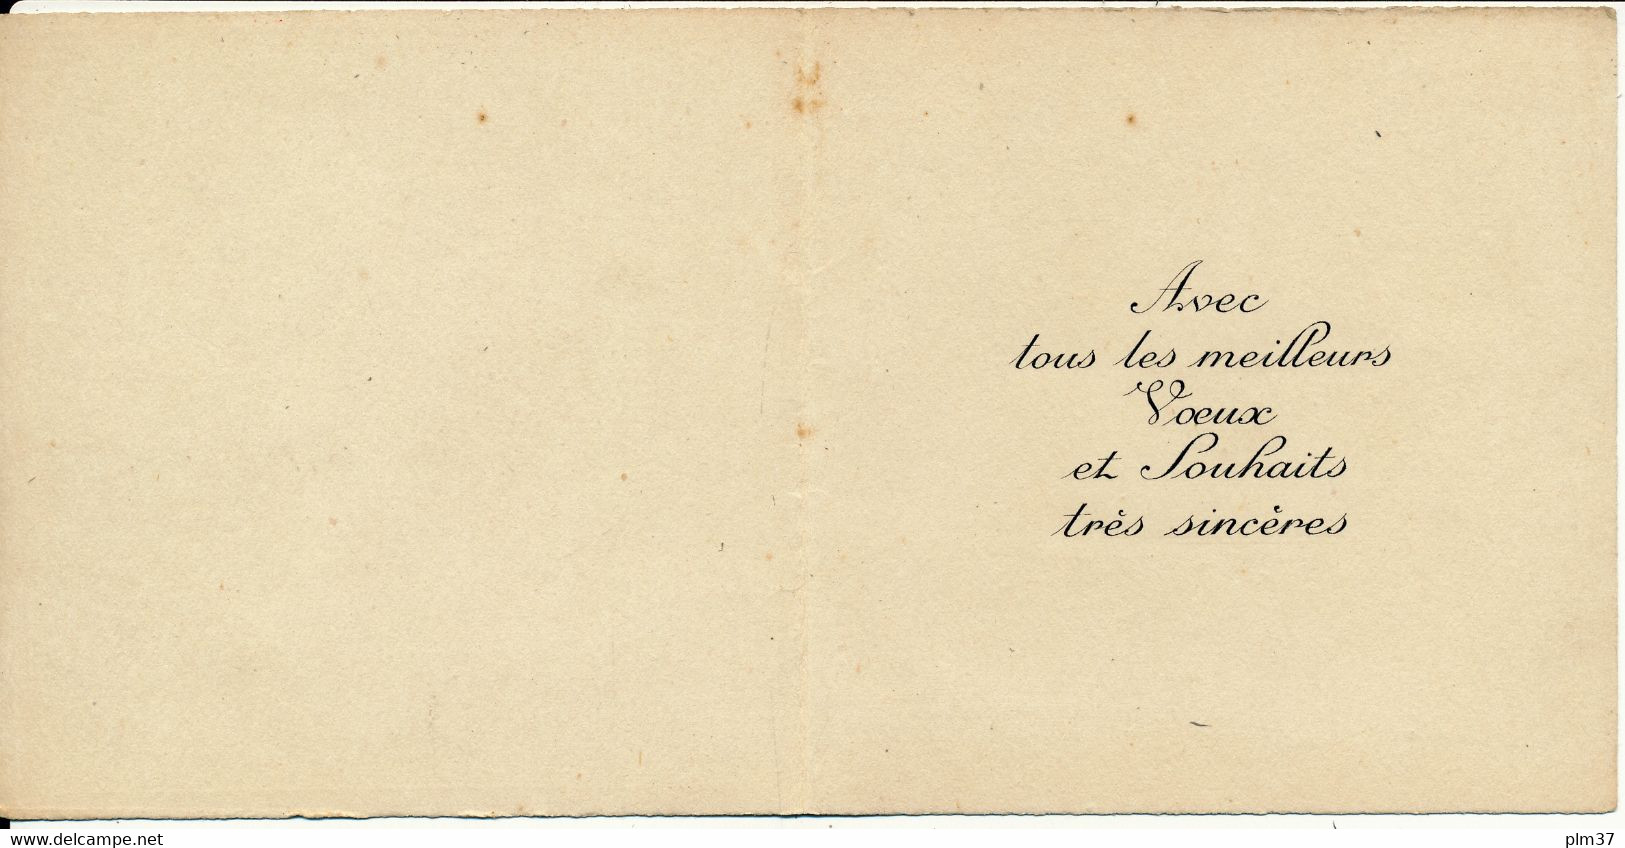 Avec
tous les meilleurs
Vœux
et Souhaits
très sincères
www.delcampe.net
plm37